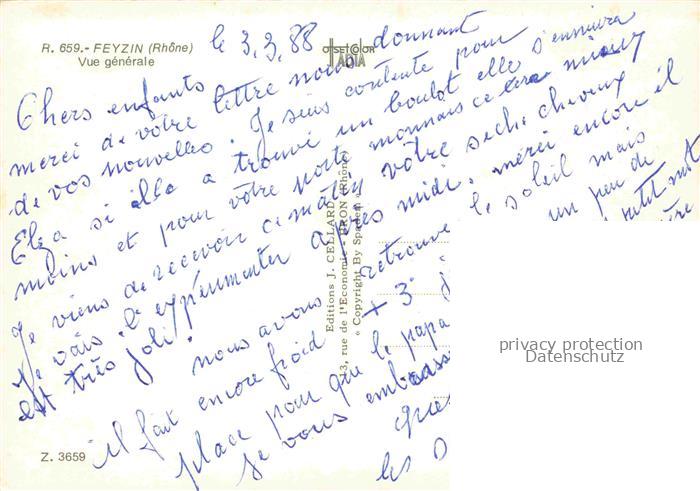 R. 659.- FEYZIN (Rhône)
Vue générale
OFFSET COLOR
le 3.3.88
Chers enfants
merci de vôtre lettre nous donnant
de vos nouvelles. Je suis contente pour
Elga si elle a trouvé un boulot elle s'ennuiera
moins et pour vôtre porte monnaie ce sera mieux
Je viens de recevoir ce matin vôtre seche cheveux
Je vais l'expérimenter après midi. merci encore il
est très joli.
nous avons retrouvé le soleil mais
il fait encore froid + 3° un peu de
place pour que le papa
je vous embrasse
les
Editions J. CELLARD
rue de l'Economie - BRON (Rhône)
« Copyright By Spadem »
Z. 3659
privacy protection
Datenschutz